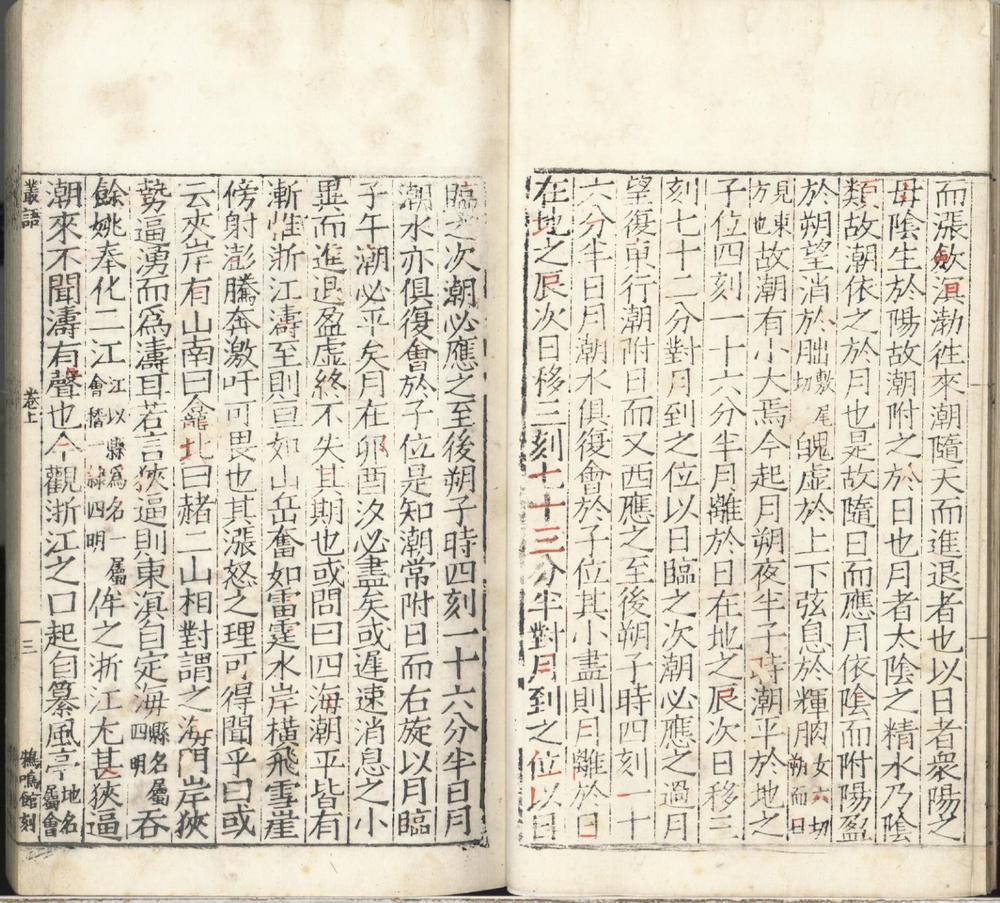 而漲斂溟渤徃來潮隨天而進退者也以日者衆陽之
母陰生於陽故潮附之於日也月者太陰之精水乃陰
類故潮依之於月也是故隨日而應月依陰而附陽盈
於朔望消於朏敷尾切魄虛於上下弦息於輝朒女六切朔而日
見東方也故潮有小大焉今起月朔夜半子時潮平於地之
子位四刻一十六分半月離於日在地之辰次日移三
刻七十二分對月到之位以日臨之次潮必應之過月
望復東行潮附日而又西應之至後朔子時四刻一十
六分半日月潮水俱復會於子位其小盡則月離於日
在地之辰次日移三刻七十三分半對月到之位以日
臨之次潮必應之至後朔子時四刻一十六分半日月
潮水亦俱復會於子位是知潮常附日而右旋以月臨
子午潮必平矣月在卯酉汐必盡矣或遲速消息之小
異而進退盈虛終不失其期也或問曰四海潮平皆有
漸惟浙江濤至則亘如山岳奮如雷霆水岸橫飛雪崖
傍射澎騰奔激吁可畏也其漲怒之理可得聞乎曰或
云夾岸有山南曰龕北曰赭二山相對謂之海門岸狹
勢逼湧而爲濤耳若言狹逼則東溟自定海縣名屬四明吞
餘姚奉化二江江以縣爲名一屬會稽一隷四明侔之浙江尤甚狹逼
潮來不聞濤有聲也今觀浙江之口起自纂風亭地名屬會
叢語
卷上
三
鴉鳴館刻